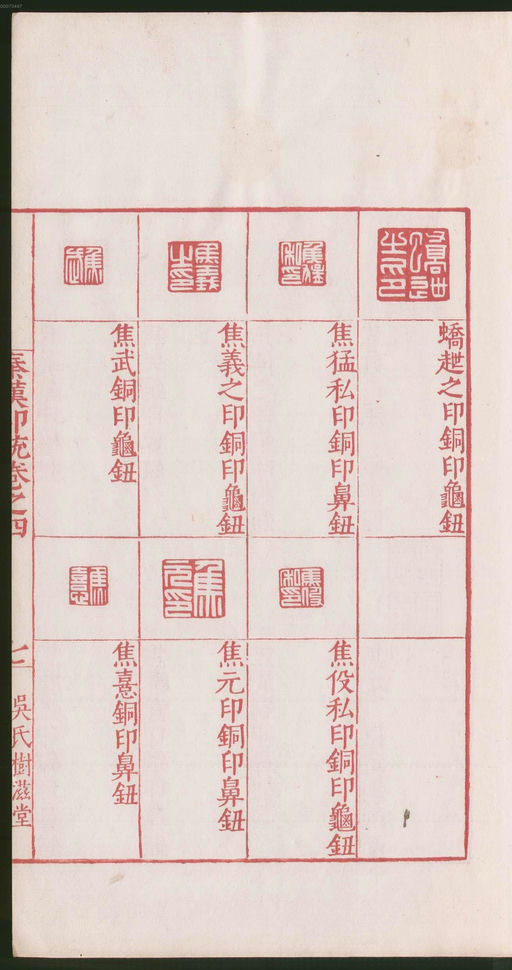 蟜趔之印銅印龜鈕
焦猛私印銅印鼻鈕
焦義之印銅印龜鈕
焦武銅印龜鈕
焦役私印銅印龜鈕
焦元印銅印鼻鈕
焦憙銅印鼻鈕
秦漢印統卷之四
七
吳氏樹滋堂
00073447